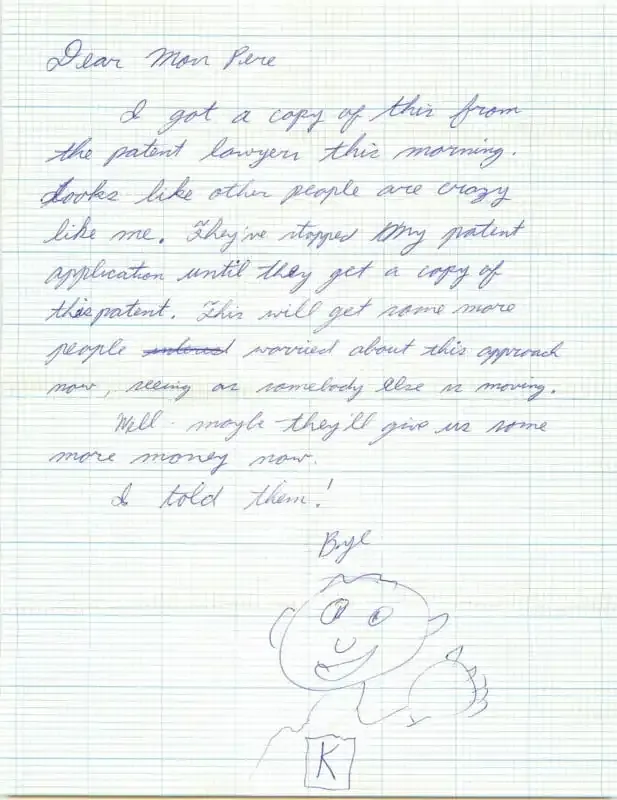 Dear Mon Pere
I got a copy of this from
the patent lawyers this morning.
Looks like other people are crazy
like me. They've stopped My patent
application until they get a copy of
this patent. This will get some more
people worried about this approach
now, seeing as somebody else is moving.
Well - maybe they'll give us some
more money now.
I told them!
K